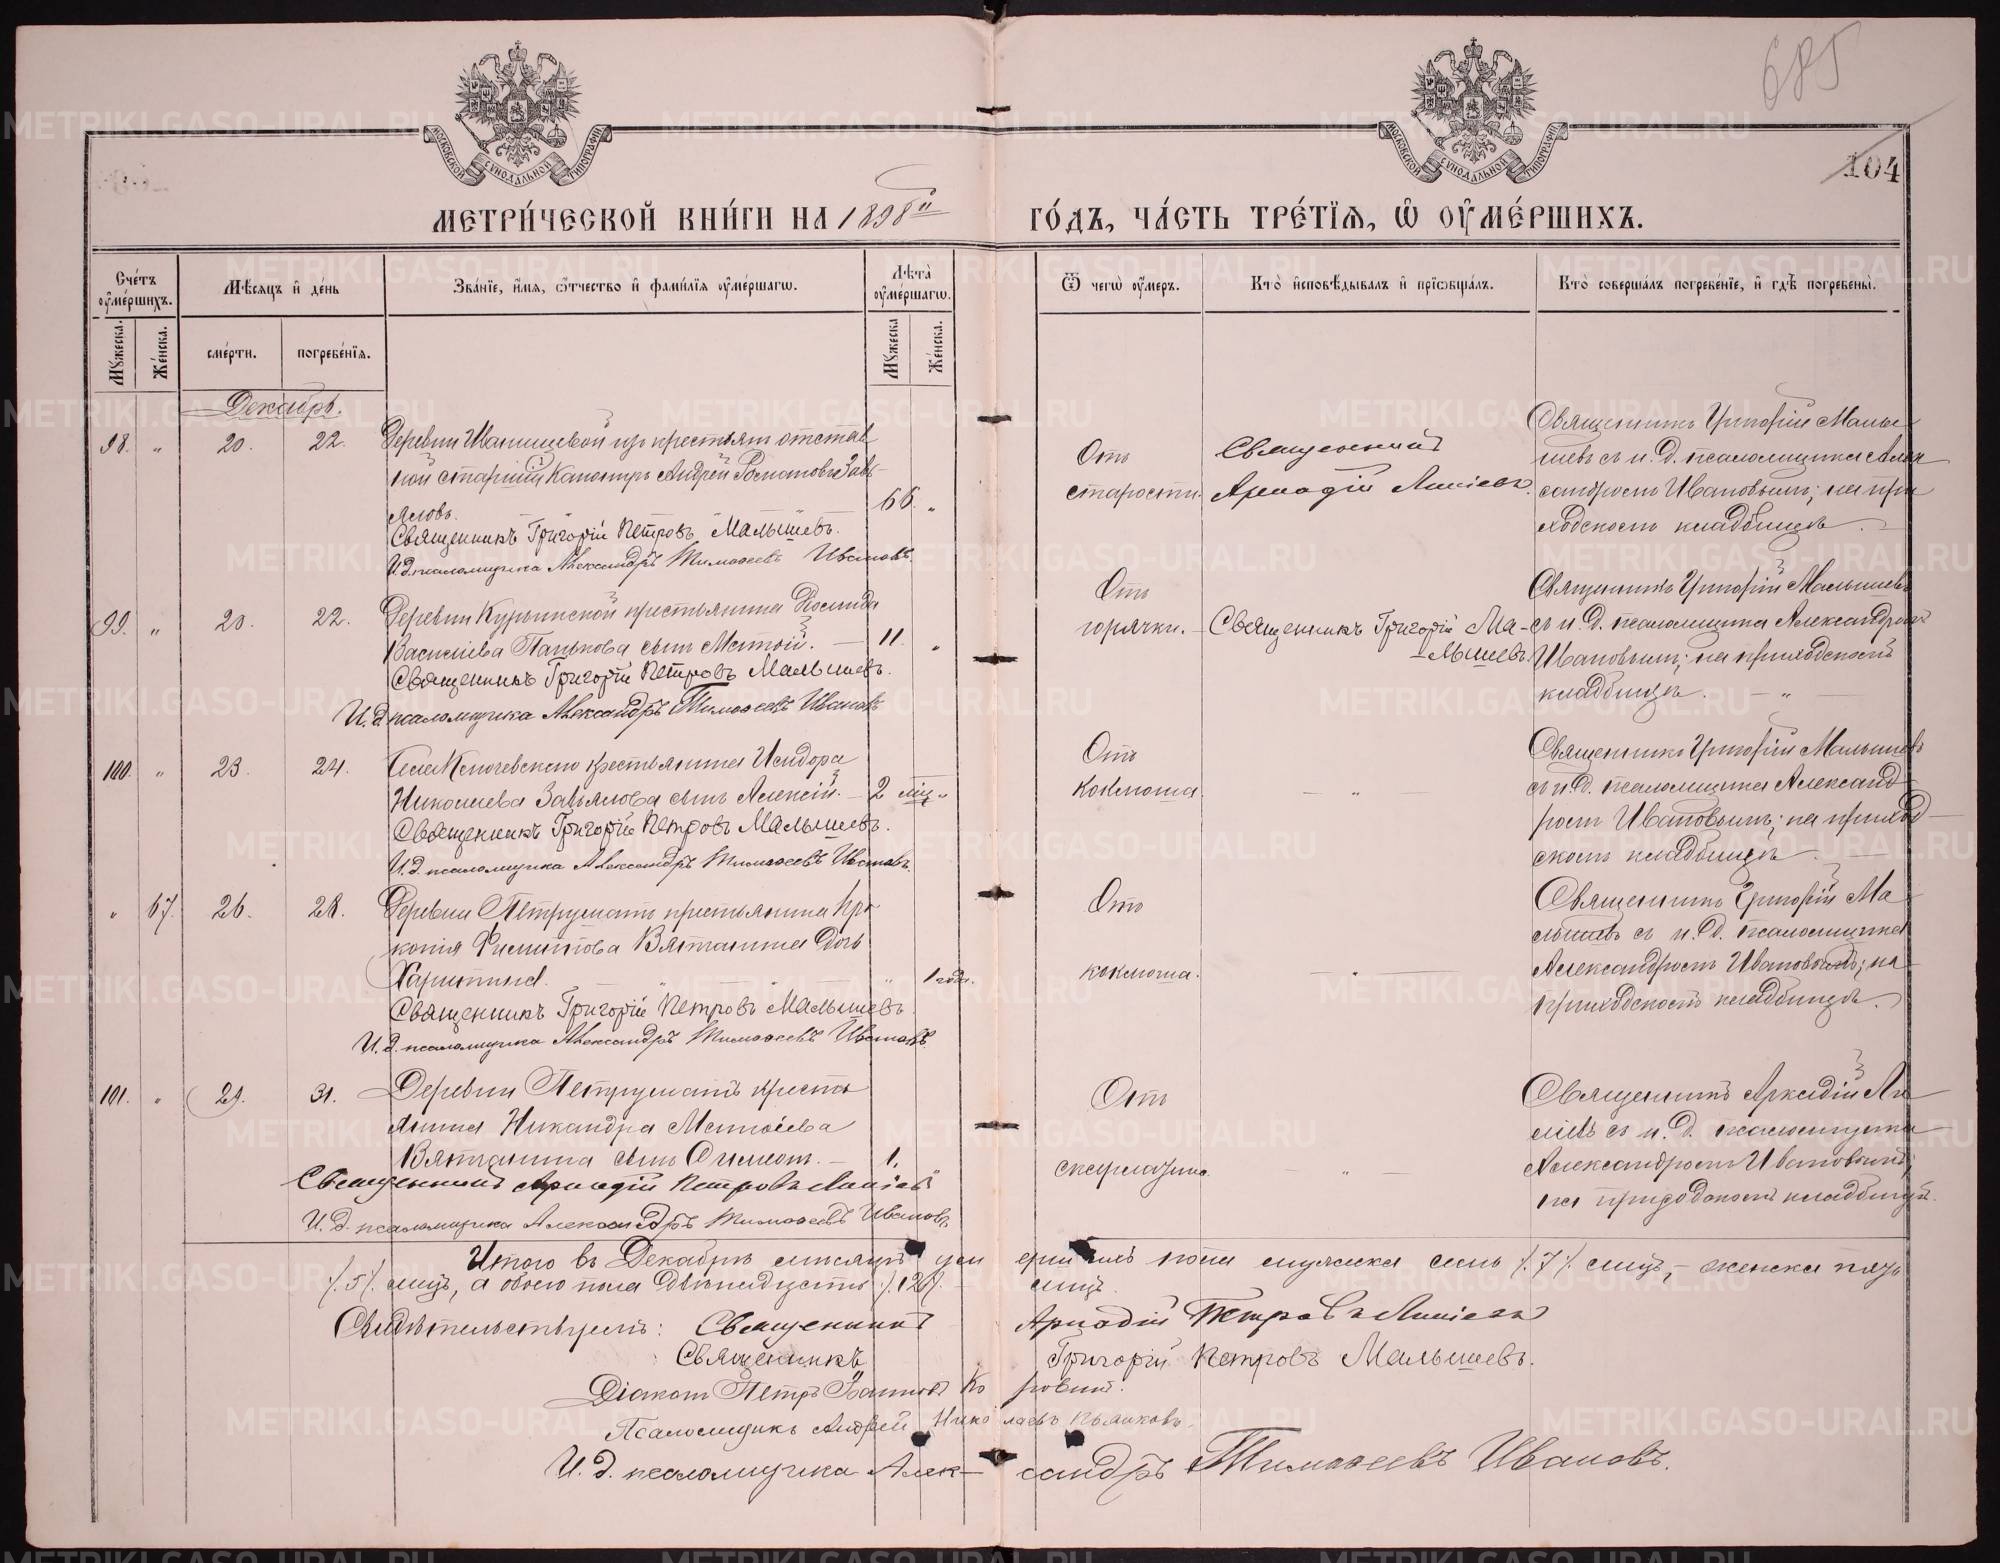 685
104
МОСКОВСКОЙ СѴНОДАЛЬНОЙ ТИПОГРАФІИ
МОСКОВСКОЙ СѴНОДАЛЬНОЙ ТИПОГРАФІИ
МЕТРИ́ЧЕСКОЙ КНИ́ГИ НА 1898й ГО́ДЪ, ЧА́СТЬ ТРЕ́ТІѦ, Ѡ҆ ОУ҆МЕ́РШИХЪ.
Сче́тъ оу҆ме́ршихъ.
Мѣ́сяцъ и҆ де́нь
Зва́нїе, и҆́мѧ, ѻ҆́тчество и҆ фами́лїѧ оу҆ме́ршагѡ.
Лѣ́та оу҆ме́ршагѡ.
Ѿ чегѡ̀ оу҆́меръ.
Кто̀ и҆сповѣ́дывалъ и҆ прїѡбща́лъ.
Кто̀ соверша́лъ погребе́нїе, и҆ гдѣ̀ погребены̀.
Мꙋ́жеска.
Же́нска.
сме́рти.
погребе́нїѧ.
Мꙋ́жеска
Же́нска.
Декабрь.
98. " 20. 22. Деревни Иванищевой изъ крестьянъ отстав
ной старшій Канониръ Андрей Романовъ Завь
яловъ. 66. "
Священникъ Григорій Петровъ Малышевъ.
И.д. псаломщика Александръ Тимоѳеевъ Ивановъ.
Отъ
старости.
Священникъ
Аркадій Ляпіевъ.
Священникъ Григорій Малы-
шевъ съ и.д. псаломщика Алек
сандромъ Ивановымъ; на при
ходскомъ кладбищѣ.
99. " 20. 22. Деревни Курьинской крестьянина
Васильева Панькова сынъ Матѳій. 11. "
Священникъ Григорій Петровъ Малышевъ.
И.д. псаломщика Александръ Тимоѳеевъ Ивановъ
Отъ
горячки.
Священникъ Григорій Ма-
лышевъ.
Священникъ Григорій Малышевъ
съ и.д. псаломщика Александромъ
Ивановымъ; на приходскомъ
кладбищѣ. — " —
100. " 23. 24. Села Ключевскаго крестьянина Исидора
Николаева Завьялова сынъ Алексій. 2 мѣц. "
Священникъ Григорій Петровъ Малышевъ.
И.д. псаломщика Александръ Тимоѳеевъ Ивановъ.
Отъ
коклюша.
— " —
Священникъ Григорій Малышевъ
съ и.д. псаломщика Александ
ромъ Ивановымъ; на приход
скомъ кладбищѣ.
" 67. 26. 28. Деревни крестьянина Про
копія Филиппова Вятчанина дочь
Харитина. " 1 годъ.
Священникъ Григорій Петровъ Малышевъ.
И.д. псаломщика Александръ Тимоѳеевъ Ивановъ.
Отъ
коклюша.
— " —
Священникъ Григорій Ма-
лышевъ съ и.д. псаломщика
Александромъ Ивановымъ; на
приходскомъ кладбищѣ.
101. " 29. 31. Деревни кресть
янина Никандра Матѳіева
Вятчанина сынъ Симеонъ. — 1. "
Священникъ Аркадій Петровъ Ляпіевъ
И.д. псаломщика Александръ Тимоѳеевъ Ивановъ.
Отъ
скарлатины.
— " —
Священникъ Аркадій Ля-
піевъ съ и.д. псаломщика
Александромъ Ивановымъ;
на приходскомъ кладбищѣ.
Итого въ Декабрѣ мѣсяцѣ умершихъ пола мужеска семь /.7/. лицъ, — женска пять
/.5/. лицъ, а обоего пола двѣнадцать /.12/. лицъ.
Свидѣтельствуемъ: Священникъ Аркадій Петровъ Ляпіевъ
Священникъ Григорій Петровъ Малышевъ.
Діаконъ Петръ Іоанновъ Коровинъ.
Псаломщикъ Андрей Николаевъ Пьянковъ.
И.д. псаломщика Александръ Тимоѳеевъ Ивановъ.
METRIKI.GASO-URAL.RU